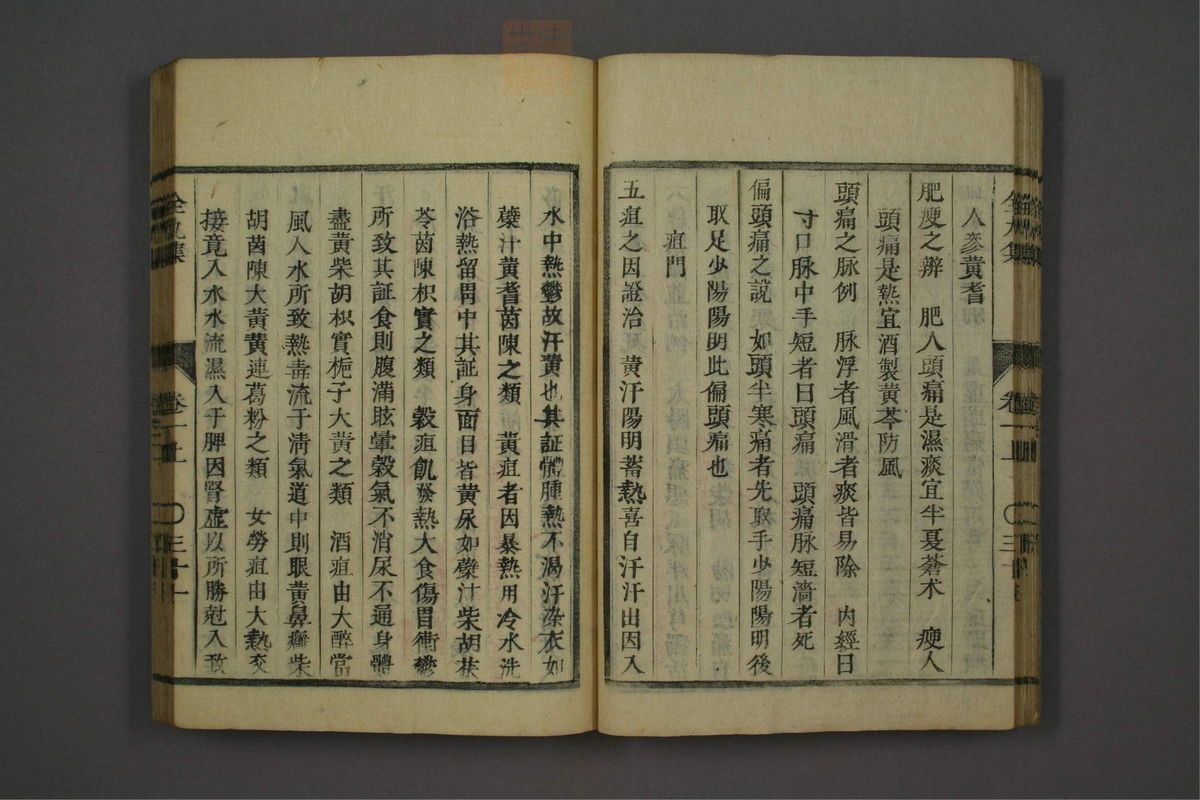 人參黃耆
肥瘦之辨　肥人頭痛是濕痰宜半夏蒼术　瘦人
頭痛是熱宜酒製黃芩防風
頭痛之脉例　脉浮者風滑者痰皆易除　內經曰
寸口脉中手短者曰頭痛　頭痛脉短濇者死
偏頭痛之說　如頭半寒痛者先取手少陽陽明後
取足少陽陽明此偏頭痛也
疸門
五疸之因證治　黃汗陽明蓄熱喜自汗汗出因入
水中熱鬱故汗黃也其証體腫熱不渴汗染衣如
蘗汁黃耆茵陳之類　黃疸者因暴熱用冷水洗
浴熱留胃中其証身面目皆黃尿如蘗汁柴胡茯
苓茵陳枳實之類　穀疸飢發熱大食傷胃衝鬱
所致其証食則腹滿眩暈穀氣不消尿不通身體
盡黃柴胡枳實梔子大黃之類　酒疸由大醉當
風入水所致熱毒流于清氣道中則眼黃鼻癰柴
胡茵陳大黃黃連葛粉之類　女勞疸由大熱交
接竟入水水流濕入于脾因腎虛以所勝尅入致
卷一上
三十一